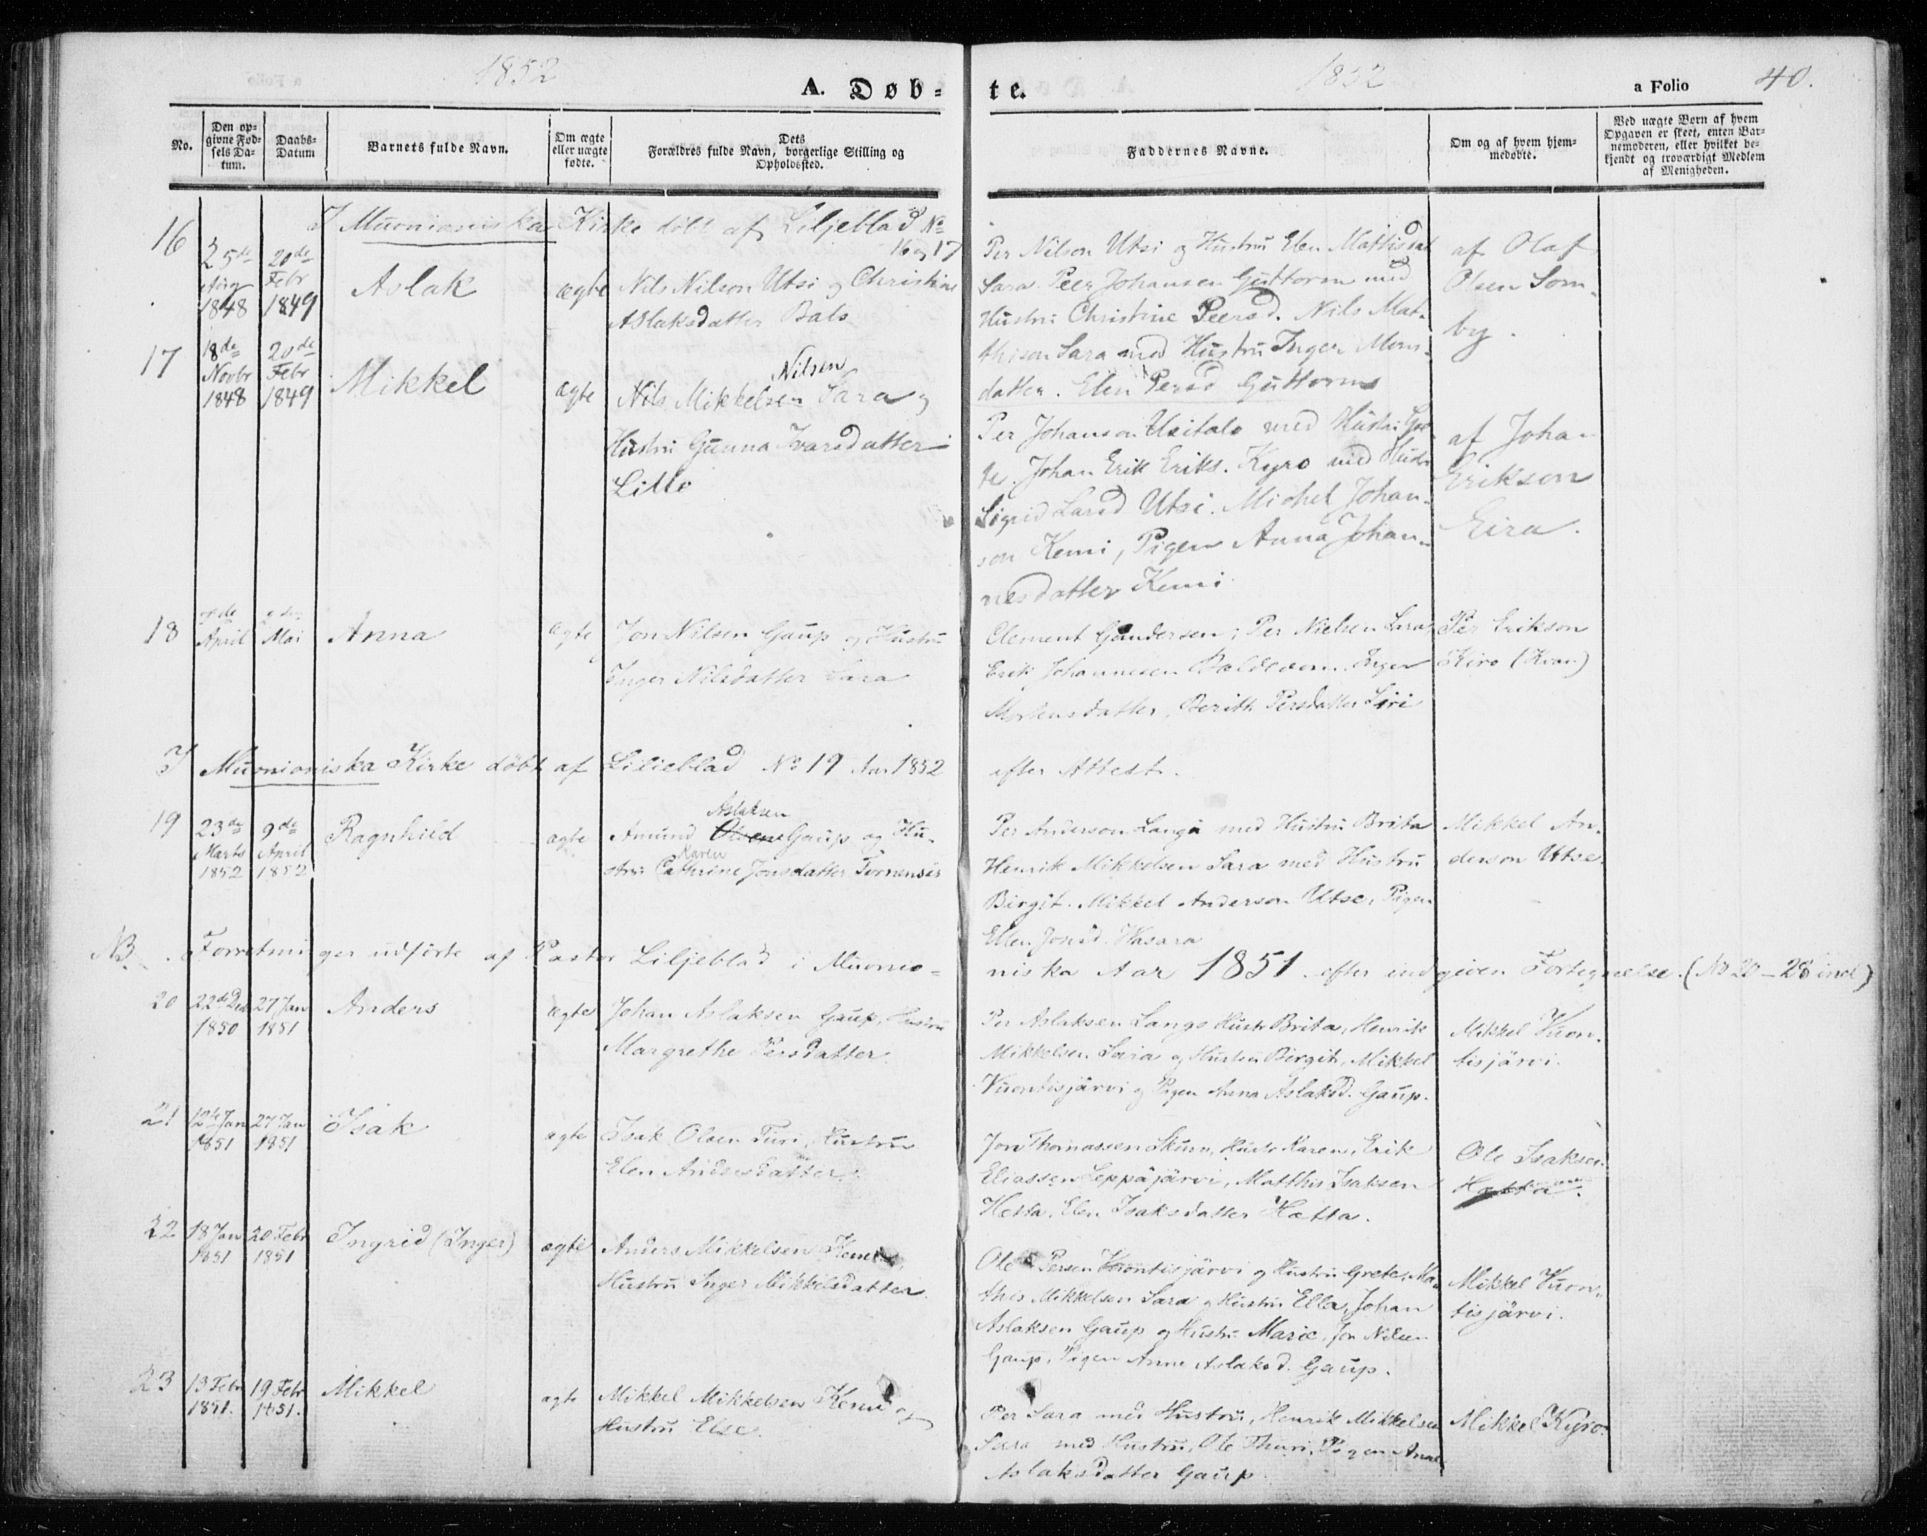 1852
A. Døb-
te.
1852
a Folio 40.
No.
Den op-
givne Fød-
sels Da-
tum.
Daabs-
Datum
Barnets fulde Navn.
Om ægte
eller uægte
fødte.
Dets
Forældres fulde Navn, borgerlige Stilling og
Opholdssted.
Faddernes Navne.
Om og af hvem hjem-
medøbte.
Ved uægte Børn af hvem
Opgaven er skeet, enten Bar-
nemoderen, eller hvilket be-
kjendt og troværdigt Medlem
af Menigheden.
I Muonioniska Kirke döbt af Liljeblad No
16 og 17
16
25de
1848
20de
Febr
1849
Aslak
ægte
Nils Nilson Utsi og Christine
Aslaksdatter Bals
Per Nilson Utsi og Hustru Elen Mattisdat
Sara. Peer Johansen Guttorm med
Hustru Christine Peersd. Nils Mat-
thison Sara med Hustru Inger Mons-
datter. Elen Persd Guttorm
af Olaf
Olsen Som-
by.
17
18de
Novbr
1848
20de
Febr
1849
Mikkel
ægte
Nilsen
Nils Mikkelsen Sara og
Hustru Gunna Ivarsdatter
Lille
Per Johanson Usitalo med Hustru Gre-
te. Johan Erik Eriks. Kyrö med Hustr
Sigrid Larsd Utsi. Michel Johan-
son Kemi, Pigen Anna Johan-
nesdatter Kemi
af Joha-
Erikson
Eira.
18
April
Mai
Anna
ægte
Jon Nilsen Gaup og Hustru
Inger Nilsdatter Sara
Clement Gundersen, Per Nielsen Sara,
Erik Johannesen Inger
Mortensdatter, Berith Persdatter Siri
Per Erikson
Kiro (Kvæn)
I Muonioniska Kirke döbt af Liljeblad No 19 Aar 1852
efter Attest.
19
23de
Marts
1852
9de
April
1852
Ragnhild
ægte
Aslaksen
Amund Olsen Gaup og Hu-
Karen
stru Cathrine Jonsdatter Tornensis
Per Anderson Langa med Hustru Brita
Henrik Mikkelsen Sara med Hustru
Birgit. Mikkel Anderson Utse, Pigen
Ellen Jonsd. Vasara
Mikkel An-
derson Utse
NB. Forretninger udförte af Pastor Liljeblad i Muonio-
niska Aar 1851 efter indgiven Fortegnelse. (No 20-28 incl)
20
22de Dec
1850
27 Jan
1851
Anders
ægte
Johan Aslaksen Gaup, Hustru
Margrethe Persdatter
Per Aslaksen Lango Hustr Brita, Henrik
Mikkelsen Sara og Hustru Birgit, Mikkel
Vuontisjärvi og Pigen Anna Aslaksd. Gaup.
Mikkel Vuon-
tisjärvi.
21
12te Jan
1851
27 Jan
1851
Isak
ægte
Isak Olsen Turi, Hustru
Elen Andersdatter
Jon Thomassen Skum, Hustr Karen, Erik
Eliassen Leppäjärvi, Matthis Isaksen
Hetta, Elen Isaksdatter Hætta.
Ole Isaksen
Hætta.
22
18 Jan
1851
20 Febr
1851
Ingrid (Inger)
ægte
Anders Mikkelsen Kemi,
Hustru Inger Mikkelsdatter.
Ole Persen Vuontisjärvi og Hustru Grete, Ma-
this Mikkelsen Sara og Hustru Ella, Johan
Aslaksen Gaup og Hustru Marie, Jon Nilsen
Gaup, Pigen Anne Aslaksd. Gaup.
Mikkel Vuon-
tisjärvi.
23
13 Febr
1851.
19 Febr
1851.
Mikkel
ægte
Mikkel Mikkelsen Kemi og
Hustru Else.
Per Sara med Hustru, Henrik Mikkelsen
Sara med Hustru, Ole Thuri, Pigen Anne
Aslaksdatter Gaup
Mikkel Kyrö